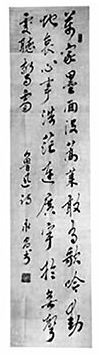 萬家墨面没蒿莱敢有歌吟動
地哀心事浩茫連廣宇於無聲
處聽驚雷
魯迅詩